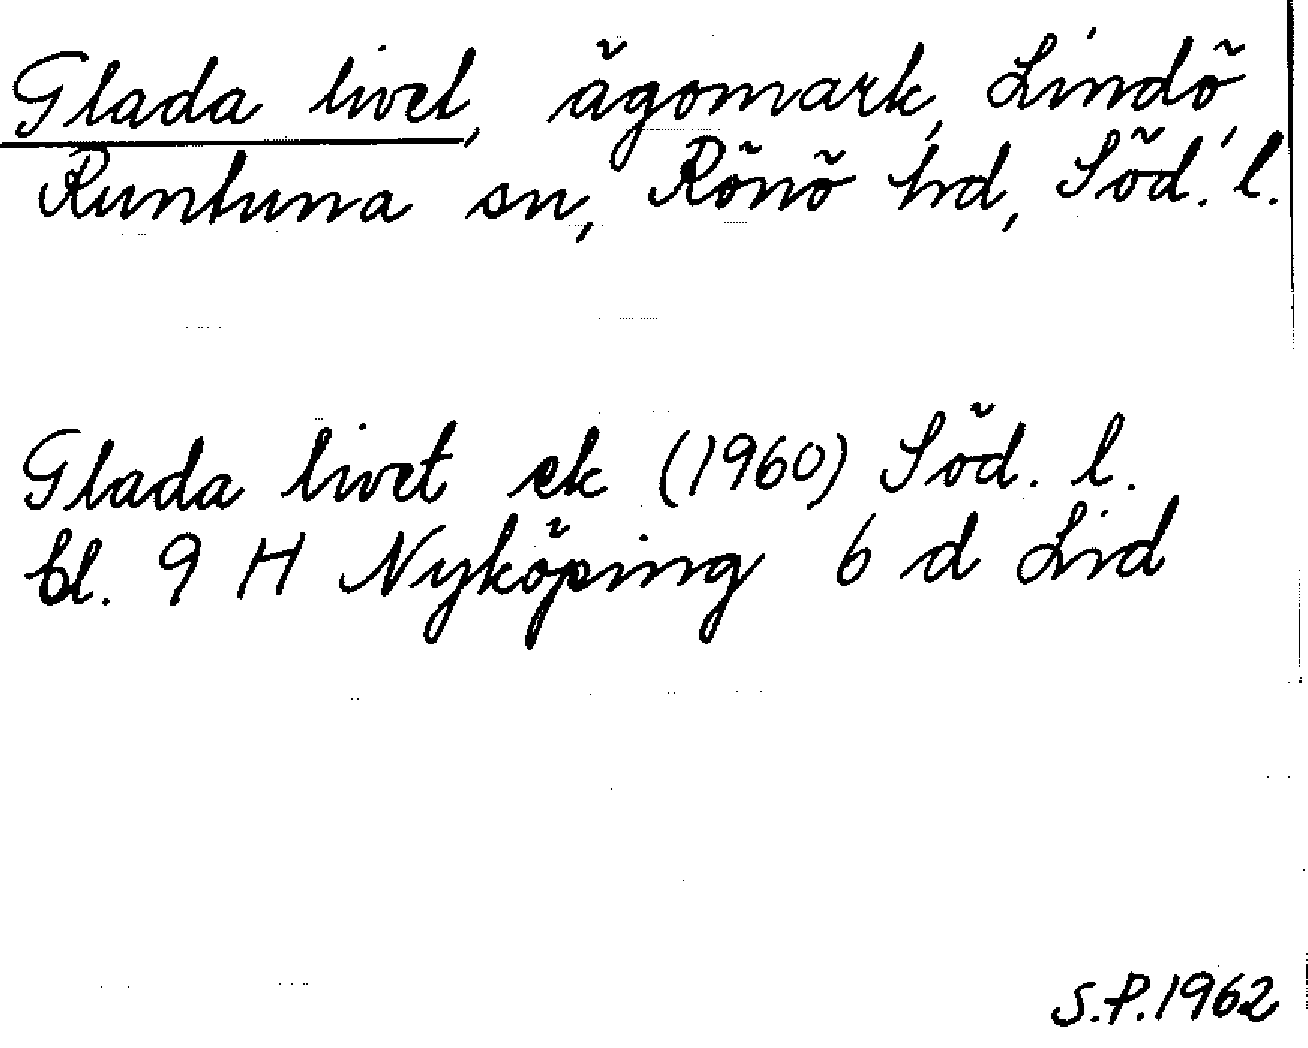 Glada livet, ägomark, Lindö,
Runtuna sn, Rönö hd, Söd. l.
Glada livet ek (1960) Söd. l.
bl. 9 H Nyköping 6 d Lid
S.P.1962